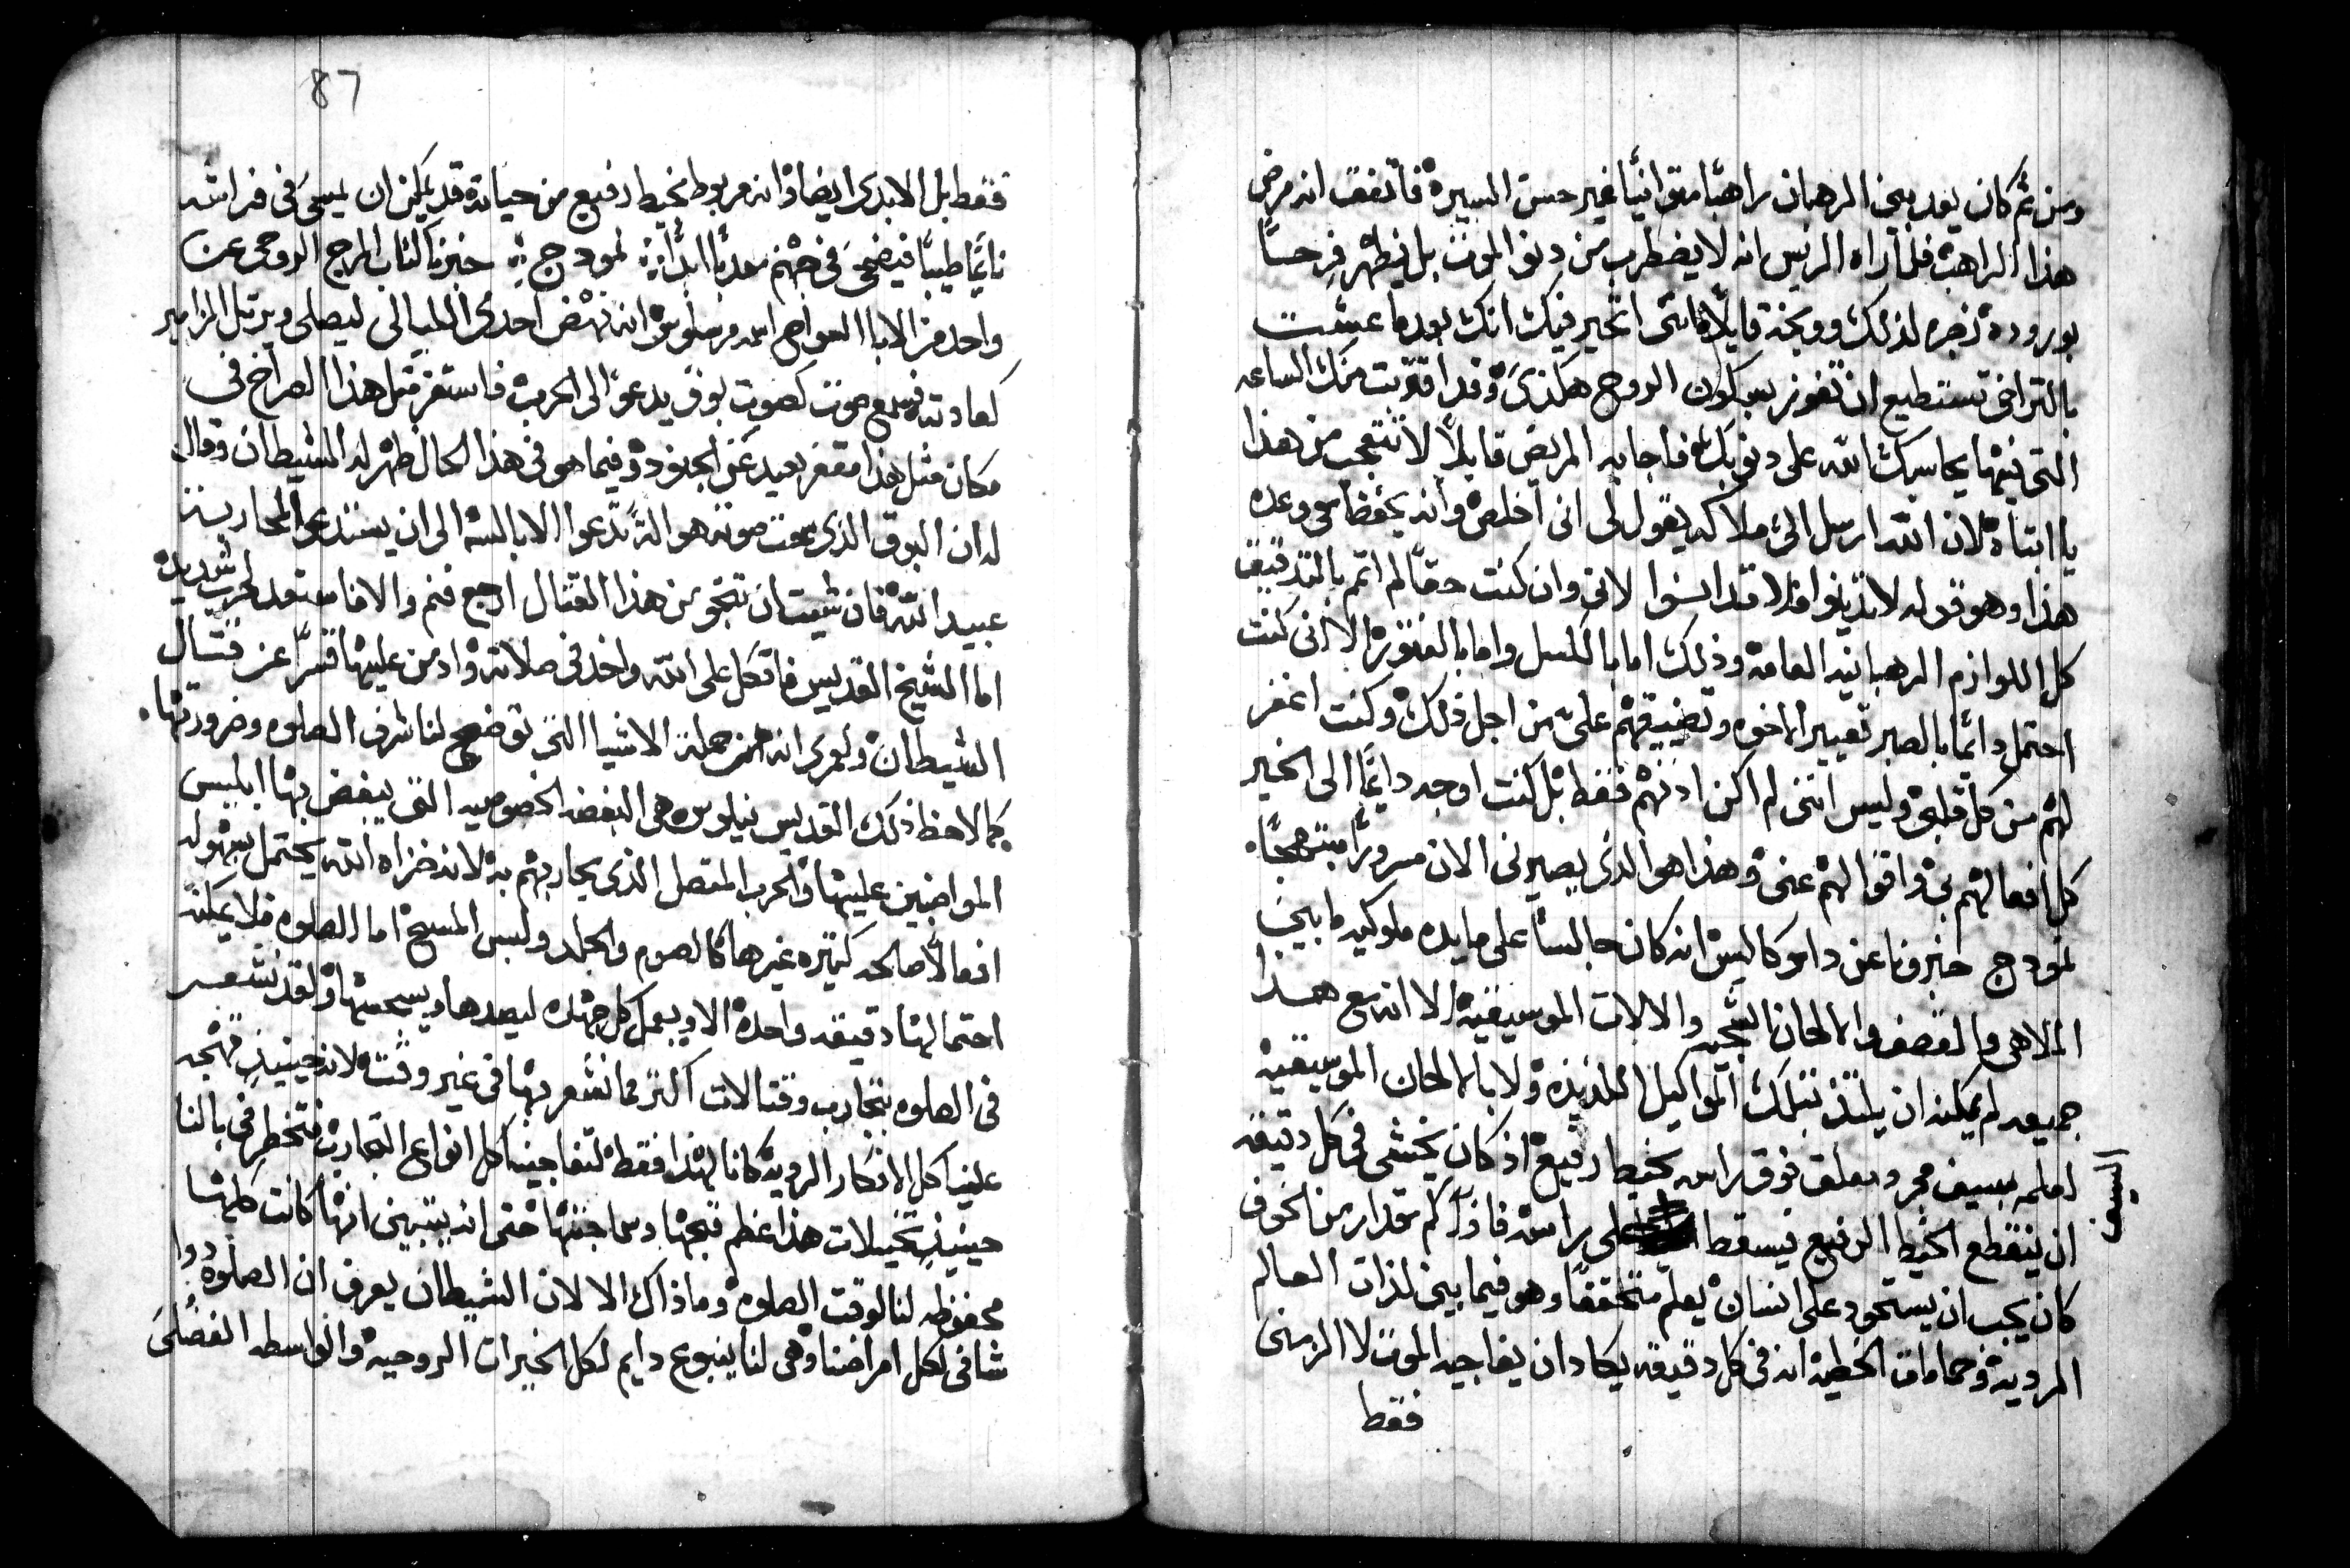 ومن ثم كان يعد بين الرهبان راهبًا متوانيًا غير حسن السيرة فاتفق انه مرض
هذا الراهب فلما راه الريس انه لا يضطرب من دنو الموت بل يظهر فرحًا
بوروده زجره لذلك ووبخه قايلًا انني اتحير فيك انك بعد ما عشت
بالتراخي تستطيع ان تفوز بسكون الروح هكذي وقد اقتربت منك الساعه
التي فيها يحاسبك الله على ذنوبك فاجابه المريض قايلًا لا تتعجب من هذا
يا ابتاه لان الله ارسل الي ملاكه يقول لي اني اخلص وانه يحفظ معي وعده
هذا وهو قوله لا تدينوا فلا تدانوا لاني وان كنت حقًا لم اتم بالتدقيق
كل اللوازم الرهبانيه العامة وذلك اما بالكسل واما بالفتور الا انني كنت
احتمل دايمًا بالصبر تعيير الاخوه وتضييقهم علي من اجل ذلك وكنت اغفر
لهم من كل قلبي وليس انني لم اكن ادنهم فقط بل كنت اوجه دايمًا الى الخير
كل افعالهم بي واقوالهم عني وهذا هو الذي يصيرني الان مسرورًا مبتهجًا
نموذج خبرونا عن داموكاليس انه كان جالسًا على مايده ملوكيه ما بين
الملاهي والقصف والالحان الشجيه والالات الموسيقية الا انه مع هذا
جميعه لم يمكنه ان يلتذ بتلك المواكيل اللذيذه ولا بالالحان الموسيقية
لعلمه بسيف مجرد معلق فوق راسه بخيط رفيع اذ كان يخشى في كل دقيقه
ان ينقطع الخيط الرفيع فيسقط على راسه فاذًا كم مقدار من الخوف
السيف
كان يجب ان يستحوذ على انسان يعلم متحققًا وهو فيما بين لذات العالم
المرديه وحماماة الخطية انه في كل دقيقه يكاد ان يفاجيه الموت لا الزمني
فقط
87
فقط بل الابدي ايضًا اذ انه مربوط بخيط رفيع من حياته قد يمكن ان يمسي في فراشه
نايمًا طيبًا فيضحي في جهنم معذبًا ابدًا نموذج خبرنا كتاب المرج الروحي عن
واحد من الابا السواح اسمه مرسلوس انه نهض احدى الليالي ليصلي ويرتل المزامير
كعادته فسمع صوت كصوت بوق يدعو الى الحرب فاستغرب مثل هذا الصراخ في
مكان مثل هذا مقفر بعيد عن الجنود وفيما هو في هذا الحال ظهر له الشيطان وقال
له ان البوق الذي سمعت صوته هو الة تدعوا الابالسه الى ان يستعدوا لمحاربة
عبيد الله فان شيت ان تنجو من هذا القتال ارجع فنم والا فاستعد لحرب شديدة
اما الشيخ القديس فاتكل على الله واخذ في صلاته وادمن عليها قسرًا عن قتال
الشيطان ولعمري انه لمن جملة الاشيا التي توضح لنا شرف الصلوه وضرورتها
كما لاحظ ذلك القديس نيلوس هي البغضه الخصوصيه التي يبغض بها ابليس
المواضبين عليها والحرب المتصل الذي يحاربهم به لانه خزاه الله يحتمل بسهوله
افعالًا صالحه كثيره غيرها كالصوم والجلد ولبس المسح اما الصلوه فلا يمكنه
احتمالها دقيقه واحدة الا ويعمل كل جهده ليصدها ويسحقها ولقد نشعر
في الصلوه بتجارب وقتالات اكثر مما نشعر بها في غير وقت لانه حينيذٍ تهجم
علينا كل الافكار الرديه كانا لهذا فقط لتفاجينا كل انواع التجارب فتخطر في بالنا
حينيذٍ تخيلات هذا عظم قبحها وسماجتها حتى انه يتبين انها كانت كلها
محفوظه لنا لوقت الصلوه وما ذاك الا لان الشيطان يعرف ان الصلوة دوا
شافي لكل امراضنا وهي لنا ينبوع دايم لكل الخيرات الروحيه والواسطه الفضلى